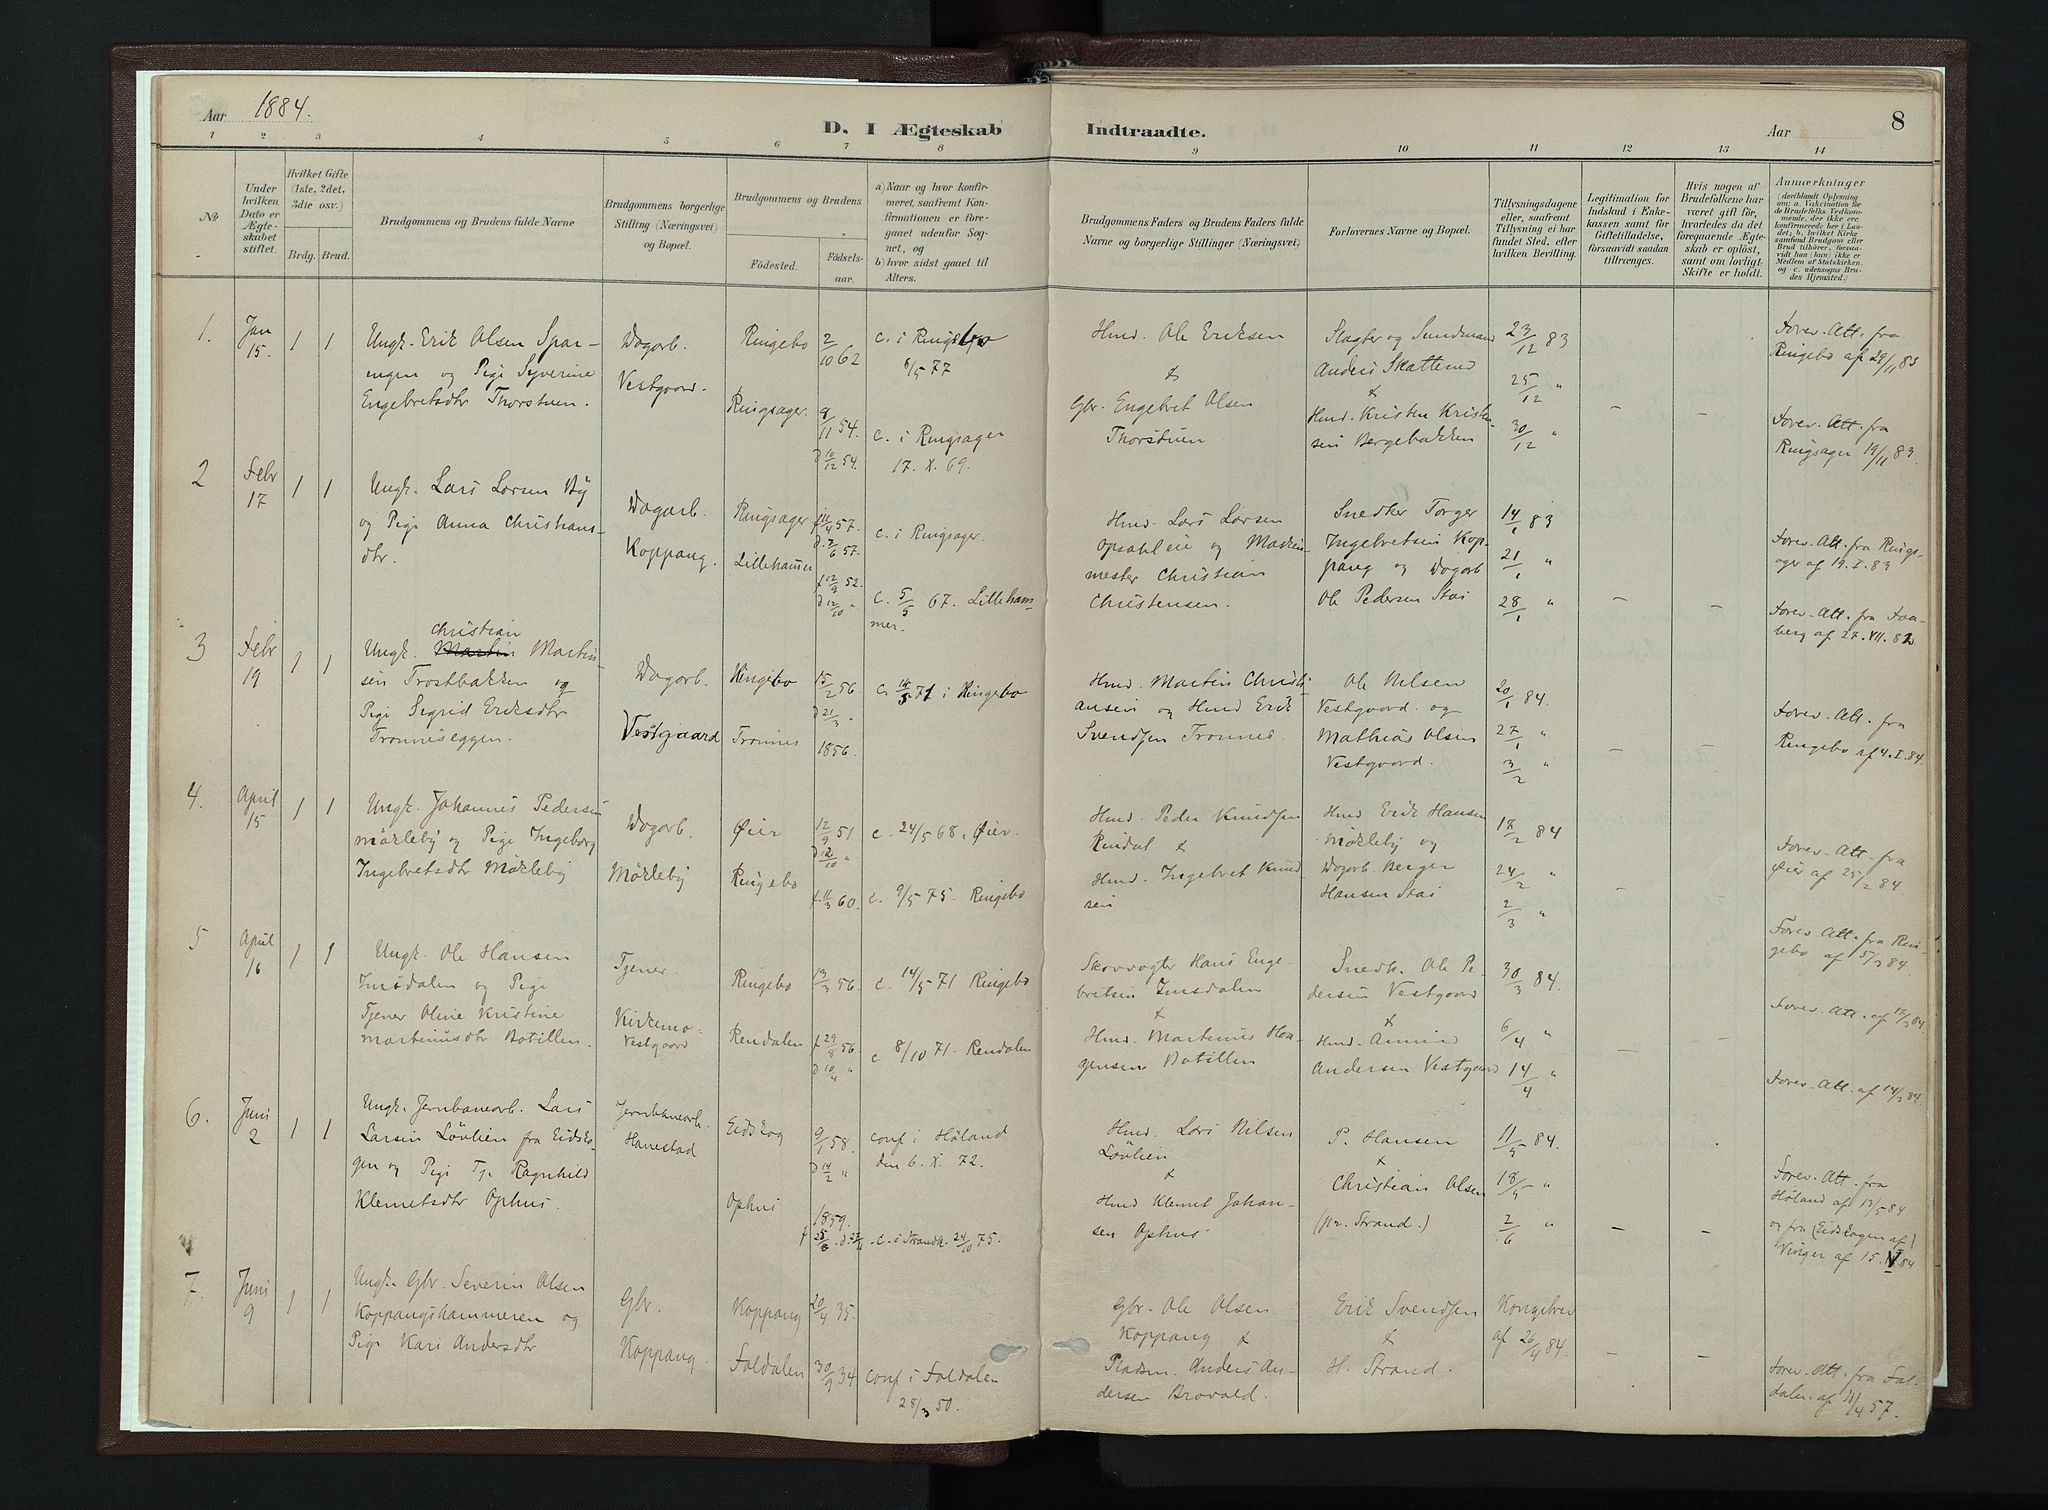 Aar 1884.
D. I Ægteskab Indtraadte.
Aar
8
1 2 3 4 5 6 7 8 9 10 11 12 13 14
No
Under hvilken Dato er Ægteskabet stiftet.
Hvilket Gifte (1ste, 2det, 3die osv.)
Brdg. Brud.
Brudgommens og Brudens fulde Navne
Brudgommens borgerlige Stilling (Næringsvei) og Bopæl.
Brudgommens og Brudens
Födested.
Födsels-aar.
a) Naar og hvor konfirmeret, saafremt Konfirmationen er foregaaet udenfor Sognet, og
b) hvor sidst gaaet til Alters.
Brudgommens Faders og Brudens Faders fulde Navne og borgerlige Stillinger (Næringsvei)
Forlovernes Navne og Bopæl.
Tillysningsdagene eller, saafremt Tillysning ei har fundet Sted, efter hvilken Bevilling.
Legitimation for Indskud i Enkekassen samt for Giftetilladelse, forsaavidt saadan tiltrænges.
Hvis nogen af Brudefolkene har været gift för, hvorledes da det foregaaende Ægteskab er oplöst, samt om lovligt Skifte er holdt.
Anmærkninger
(deriblandt Oplysning om: a. Vaksination for de Brudefolks Vedkommende, der ikke ere konfirmerede her i Landet; b. hvilket Kirkesamfund Brudgom eller Brud tilhörer, forsaavidt han (hun) ikke er Medlem af Statskirken, og c. udensogns Brudes Hjemsted.)
1. Jan 15. 1 1
Ungk. Erik Olsen Spar-
engen og Pige Syverine
Engebretsdtr Thorstuen.
Dagarb.
Vestgaard.
Ringebo 2/10 62
Ringsager. 9/11 54.
d 10/12 54.
c. i Ringebo
6/5 77
c. i Ringsager
17. X. 69.
Hmd. Ole Eriksen
&
Gbr. Engebret Olsen
Thorstuen
Slagter og Sundmand
Anders Skatterud
&
Hmd. Kristen Kristen-
sen Bergebakken
23/12 83
25/12 "
30/12 "
– –
Forev. Att. fra
Ringebo af 29/11 83
Forev. Att. fra
Ringsager 19/11 83.
2 Febr 17 1 1
Ungk. Lars Larsen By
og Pige Anna Christians-
dtr.
Dagarb.
Koppang.
Ringsager
Lillehamer
57.
d. 2/6 57.
52.
d 12/10 "
c. i Ringsager.
c. 5/5 67. Lilleham-
mer.
Hmd. Lars Larsen
Opsahleie og Maskin-
mester Christian
Christensen.
Snedker Torger
Ingebretsen Kop-
pang og Dagarb
Ole Pedersen Stai
14/1 83
21/1 "
28/1 "
– –
Forev. Att. fra Rings-
ager af 19. I. 83
Forev. Att. fra Faa-
berg af 27. VII. 82.
3 Febr 19 1 1
Christian
Ungk. Martin Martin-
sen Trostbakken og
Pige Sigrid Eriksdtr
Trønneseggen.
Dagarb.
Vestgaard
Ringebo
Trønnes
15/2 56
d 21/3 "
1856.
c. 14/5 71 i Ringebo
Hmd. Martin Christi-
ansen og Hmd Erik
Svendsen Trønnes.
Ole Nilsen
Vestgaard. og
Mathias Olsen
Vestgaard.
20/1 84.
27/1 "
3/2 "
– –
Forev. Att. fra
Ringebo af 4. I. 84.
4. April 15 1 1
Ungk. Johannes Pedersen
Mörkeby og Pige Ingeborg
Ingebretsdtr Mörkeby
Dagarb.
Mörkeby
Øier
Ringebo
12/9 51
d 12/10 "
f. 11/3 60.
c. 24/5 68. Øier.
c. 9/5 75. Ringebo
Hmd. Peder Knudsen
Rindal &
Hmd. Ingebret Knud-
sen
Hmd Erik Hansen
Mörkeby og
Dagarb Berger
Hansen Stai
17/2 84
24/2 "
2/3 "
–
Forev. Att. fra
Øier af 25/2 84.
Forev. Att. fra Rin-
gebo af 5/3 84
5 April 16 1 1
Ungk. Ole Hansen
Imsdalen og Pige
Tjener Oline Kristine
Martiniusdtr Botillen.
Tjener
Kirkemo-
Vestgaard
Ringebo
Rendalen
13/3 56.
f 29/8 56
d 10/4 "
c. 14/5 71 Ringebo
c 8/10 71. Rendalen
Skovvogter Hans Enge-
bretsen Imsdalen
&
Hmd. Martinius Haa-
gensen Botillen
Snedk. Ole Pe-
dersen Vestgaard
&
Hmd.
Andersen Vestgaard
30/3 84.
6/4 "
14/4 "
– –
Forev. Att. af 17/3 84
Forev. Att. af 14/3 84.
6. Juni 2 1 1
Ungk. Jernbanearb. Lars
Larsen Lövlien fra Eidsko-
gen og Pige Tj. Ragnhild
Klemetsdtr Ophus.
Jernbanearb.
Hanestad
Eidskog
Ophus
9/1 58.
d 14/2 "
1859.
Conf i Høland
den 6. X. 72.
c. i Strandk. 24/10 75.
Hmd. Lars Nilsen
Lövlien
&
Hmd Klemet Johan-
sen Ophus.
P. Hansen
&
Christian Olsen
(pr. Strand.)
11/5 84.
18/5 "
2/6 "
– –
Forev. Att. fra
Høland af 13/5 84
og fra (Eidskogen af)
Vinger af 15. V. 84
7. Juni 9 1 1
Ungk. Gbr. Severin Olsen
Koppangshammeren og
Pige Kari Andersdtr
Gbr.
Koppang.
Koppang
Foldalen
20/4 35.
30/9 34
Conf i Foldalen
28/3 50.
Gbr. Ole Olsen
Koppang &
Pladsm. Anders An-
dersen Brovold.
Erik Svendsen
&
H. Strand.
Kongebrev
af 26/4 84.
– –
Forev. Att. fra Fol-
dalen af 11/4 57.